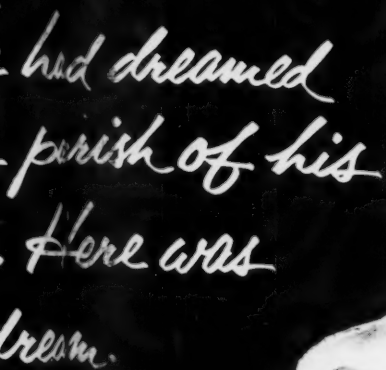 had dreamed
parish of his
Here was
dream.